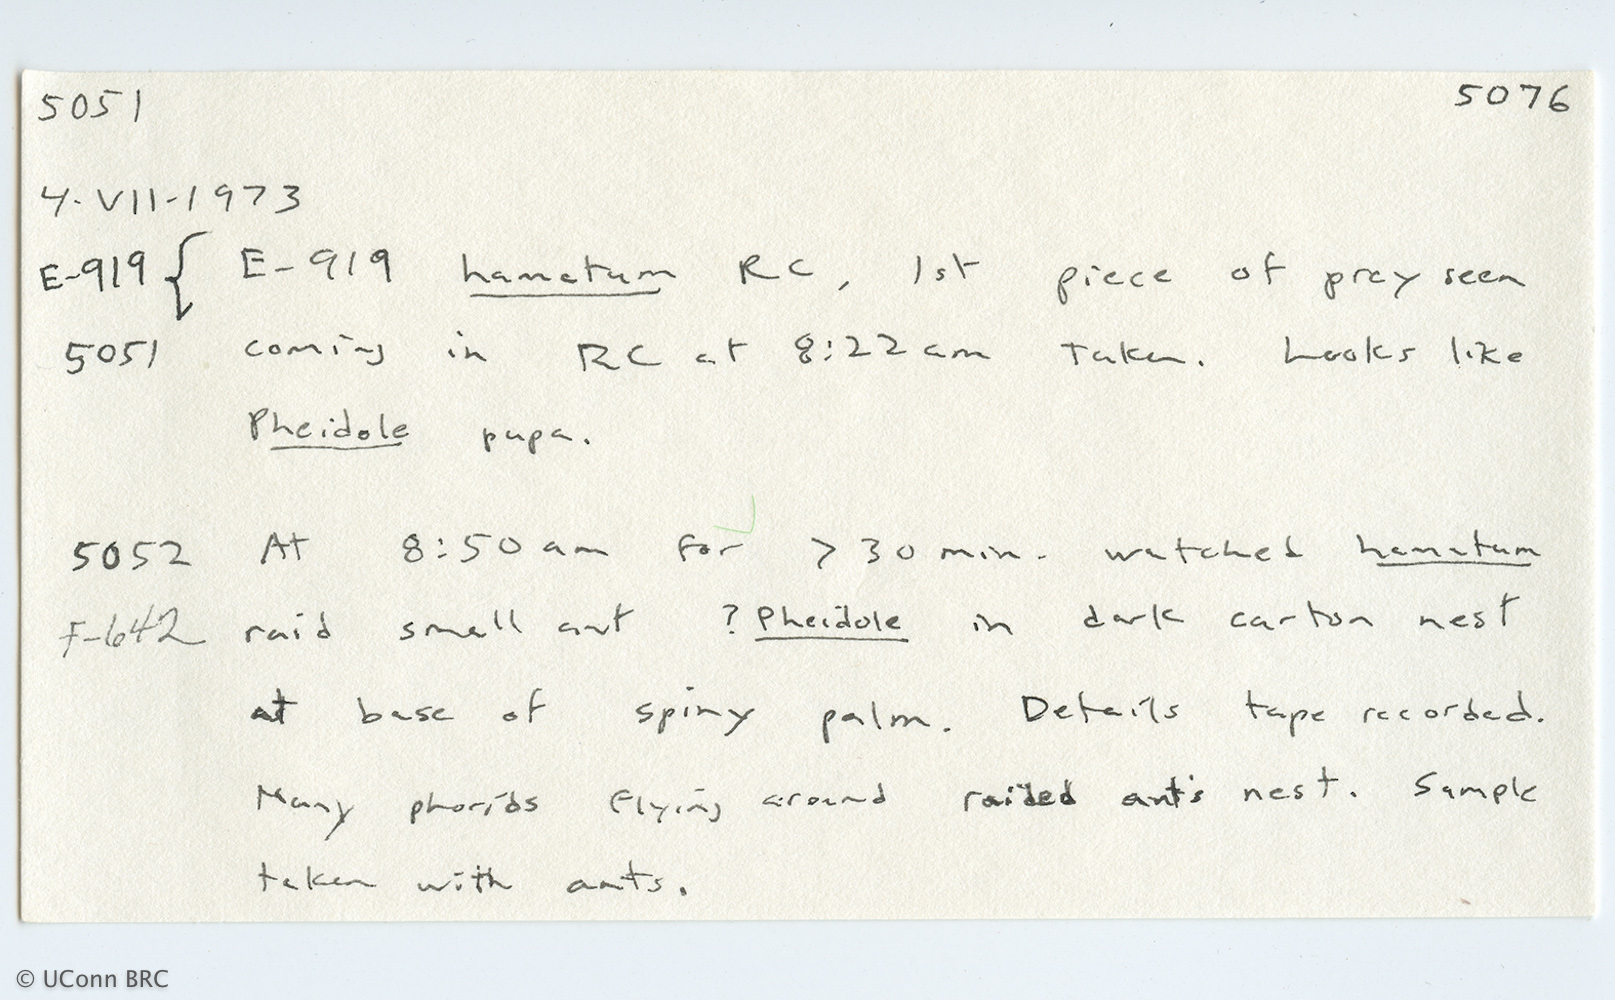 5051 5076
4-VII-1973
E-919 { E-919 hamatum RC, 1st piece of prey seen
5051 coming in RC at 8:22 am taken. Looks like
Pheidole pupa.
5052 At 8:50 am for >30 min. watched hamatum
F-642 raid small ant ?Pheidole in dark carton nest
at base of spiny palm. Details tape recorded.
Many phorids flying around raided ant's nest. Sample
taken with ants.
© UConn BRC